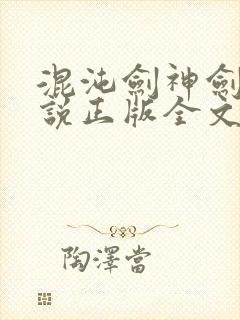 混沌劍神劍
說正版全文
陶澤當